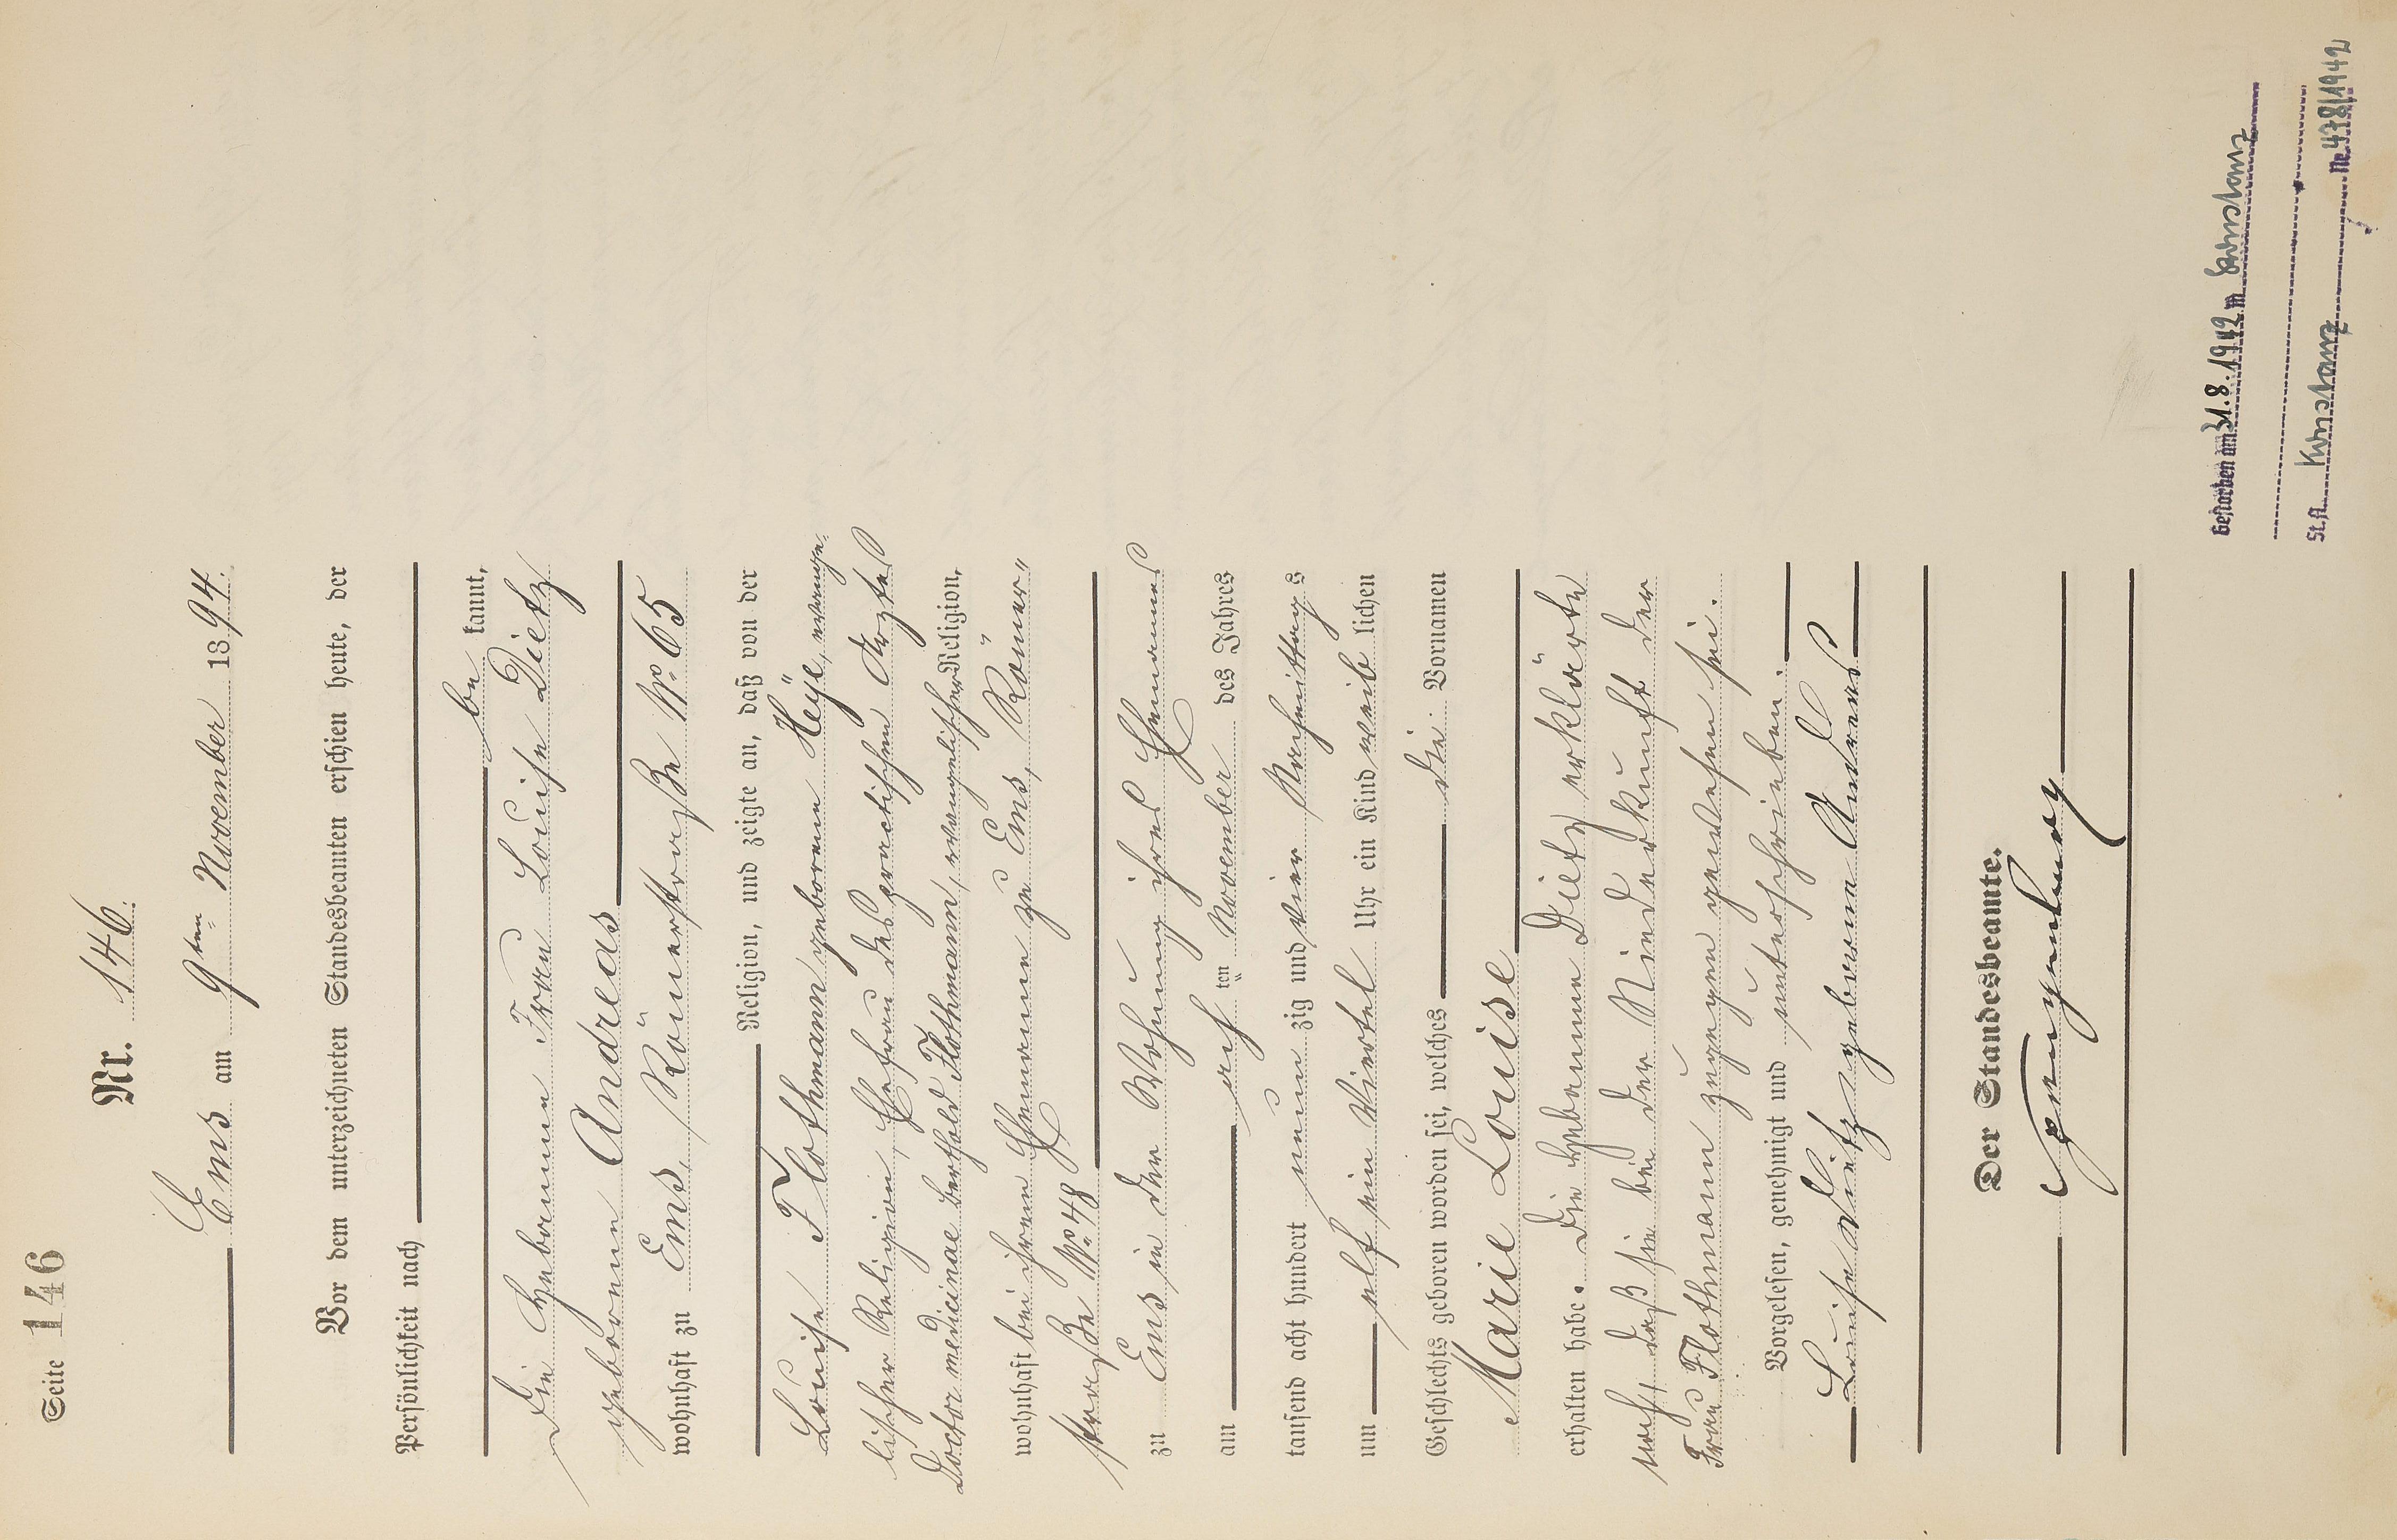 Seite 146
Nr. 146.
Ems am 9ten November 1894.
Vor dem unterzeichneten Standesbeamten erschien heute, der
Persönlichkeit nach
be kannt,
die Hebamme Frau Louise Dietz
geborene Andreas
wohnhaft zu Ems, Römerstraße No. 65
Religion, und zeigte an, daß von der
Louise Flothmann geborene Heÿe, evange-
lischer Religion, Ehefrau des practischen Arztes
Doctor medicinae Berthold Flothmann, evangelischer Religion,
wohnhaft bei ihrem Ehemanne zu Ems, Römer„
straße No. 48
zu Ems in der Wohnung ihres Ehemannes
am acht ten November des Jahres
tausend acht hundert neun zig und vier Nachmittags
um elf ein Viertel Uhr ein Kind weib lichen
Geschlechts geboren worden sei, welches die Vornamen
Marie Louise
erhalten habe. Die Hebamme Dietz erklärte
noch, daß sie bei der Niederkunft der
Frau Flothmann zugegen gewesen sei.
Vorgelesen, genehmigt und unterschrieben.
Louise Dietz geborene Andreas
Der Standesbeamte.
Gestorben am 31.8.1942 in Konstanz
St.A. Konstanz Nr. 438/1942